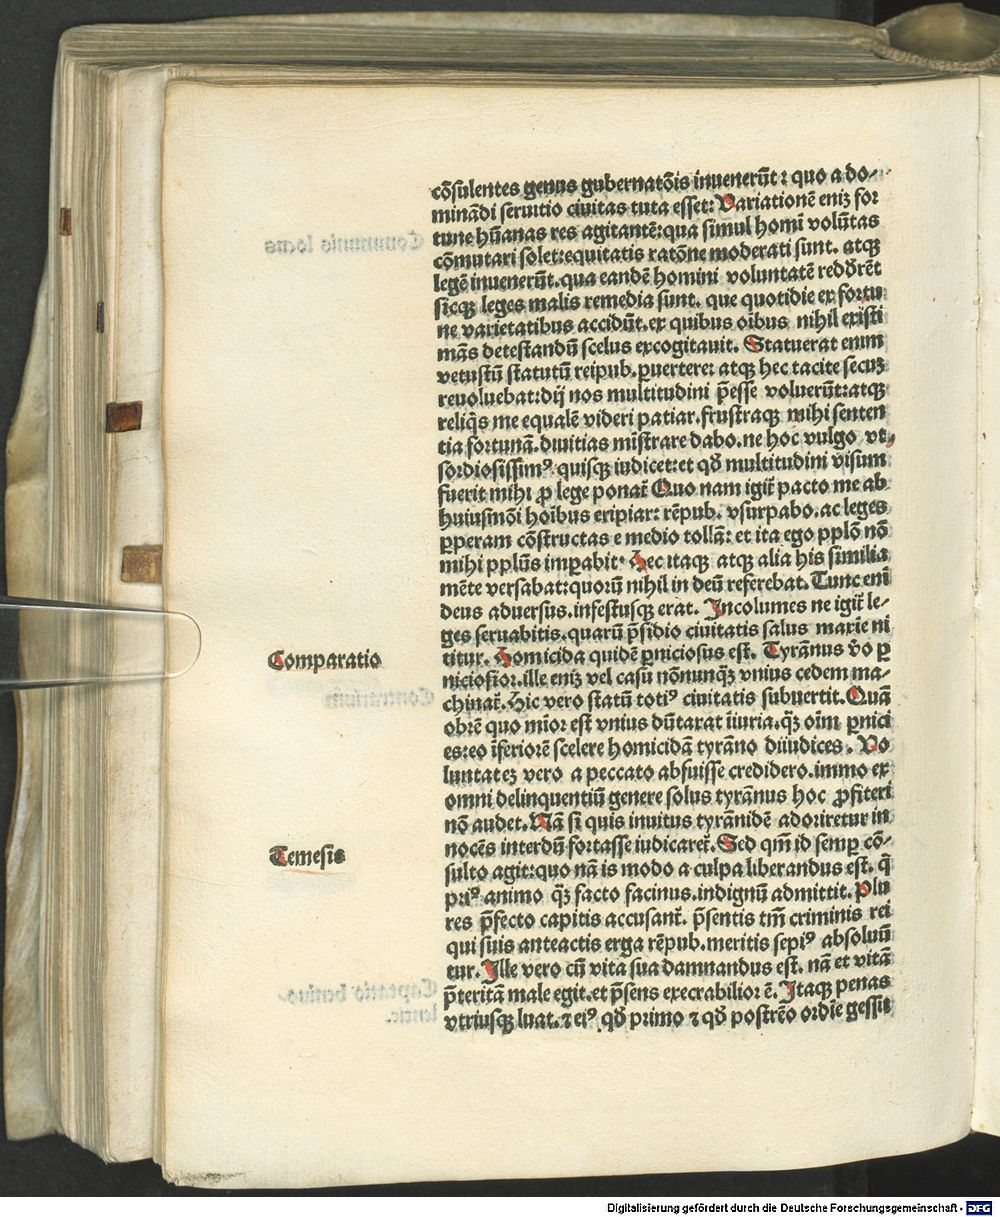 cõsulentes genus gubernatõis inuenerūt: quo a do⸗
minādi seruitio ciuitas tuta esset: Variationē eniꝫ for
tune hūanas res agitantē: qua simul homĩ volūtas
cõmutari solet: equitatis ratõne moderati sunt. atqꝫ
legē inuenerūt. qua eandē homini voluntatē reddrēt
sicqꝫ leges malis remedia sunt. que quotidie ex fortu
ne varietatibus accidūt. ex quibus oĩbus nihil existi
mās detestandū scelus excogitauit. Statuerat enim
vetustū statutū reipub. ꝑuertere: atqꝫ hec tacite secuꝫ
reuoluebat: dij nos multitudini p̄esse voluerūt: atqꝫ
reliq̄s me equalē videri patiar. frustraqꝫ mihi senten
tia fortunā. diuitias mĩstrare dabo. ne hoc vulgo vt
sordiosissimꝰ quisqꝫ iudicet: et qđ multitudini visum
fuerit mihi ꝓ lege ponat᷑ Quo nam igit᷑ pacto me ab
huiusmõi hoĩbus eripiar: rēpub. vsurpabo. ac leges
ꝑperam cõstructas e medio tollā: et ita ego pplõ nõ
mihi pplūs imꝑabit. Hec itaqꝫ atqꝫ alia his similia
mēte versabat: quorū nihil in deū referebat. Tunc enĩ
deus aduersus. infestusqꝫ erat. Incolumes ne igit᷑ le⸗
ges seruabitis. quarū p̄sidio ciuitatis salus maxĩe ni
titur. Homicida quidē ꝑniciosus est. Tyrānus vo ꝑ
niciosior. ille eniꝫ vel casū nõnunqꝫ vnius cedem ma⸗
chinat᷑. Hic vero statū totiꝰ ciuitatis subuertit. Quā
obrē quo mĩor est vnius dūtarat iĩuria. qꝫ oĩm ꝑnici
es: eo ĩferiorē scelere homicidā tyrāno diiudices. Vo
luntateꝫ vero a peccato abfuisse credidero. immo ex
omni delinquentiū genere solus tyrānus hoc ꝓfiteri
nõ audet. Nā si quis inuitus tyrānidē adoriretur in
nocēs interdū fortasse iudicaret᷑. Sed qm̄ id semꝑ cõ⸗
sulto agit: quo nā is modo a culpa liberandus est. q̄
priꝰ animo qꝫ facto facinus. indignū admittit. Plu
res p̄fecto capitis accusant᷑. p̄sentis tm̄ criminis rei
qui suis anteactis erga rēpub. meritis sepiꝰ absoluū
tur. Ille vero cū vita sua damnandus est. nā et vitā
p̄teritā male egit. et p̄sens execrabilior ē. Itaqꝫ penas
vtriusqꝫ luat. ⁊ eiꝰ qđ primo ⁊ qđ postrēo ordĩe gessit
Comparatio
Temesis
Digitalisierung gefördert durch die Deutsche Forschungsgemeinschaft - DFG